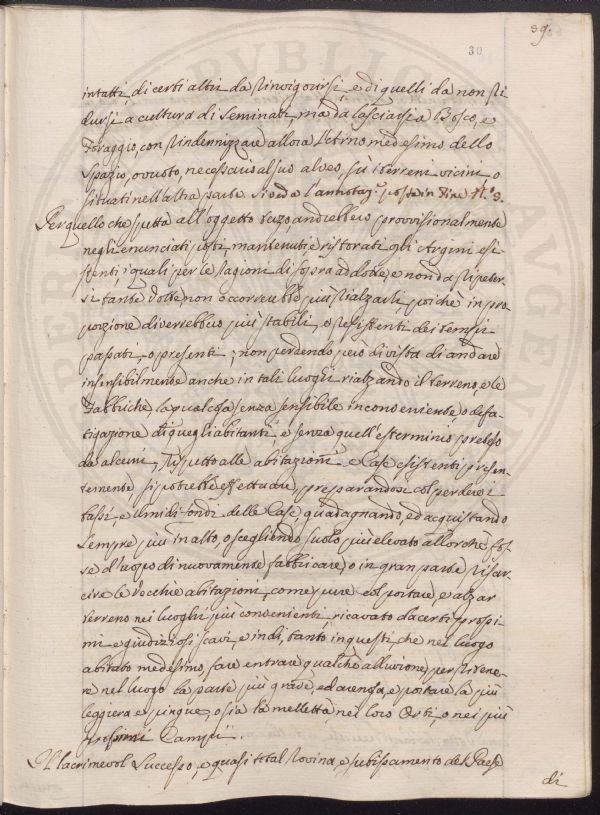 39.
30
intatti, di certi altri da rinvigorirsi, e di quelli da non ri
dursi a cultura di Seminati, ma da lasciarsi a Bosco, e
foraggio, con rindennizzare allora l'Etrno medesimo dello
Spazio, o vuoto, necessario al suo alveo, sù i terreni vicini, o
situati nell'altra parte. Si veda l'annotaz.e posta in Fine N.o 9.
Per quello che spetta all'oggetto terzo, andrebbero provvisionalmente
negli enunciati posti mantenuti e ristorati gli Argini esi
stenti, i quali per le ragioni di sopra addotte, e non da ripeter-
si tante volte non occorrerebbe più rialzarli, poiche in pro-
porzione diverrebbero più stabili, e resistenti dei tempi
passati, o presenti; non perdendo però di vista di andare
insensibilmente anche in tali luoghi rialzando il terreno, e le
Fabbriche, la qual cosa senza sensibile inconveniente, o defa-
tigazione di quegli abitanti, e senza quell'esterminio preteso
da alcuni, rispetto alle abitazioni, e Case esistenti presen-
temente si potrebbe effettuare, preparandosi col perdere i
bassi, e umidi fondi delle Case, guadagnando, ed acquistando
sempre più in alto, o scegliendo suolo più elevato allorche fos-
se d'uopo di nuovamente fabbricare, o in gran parte risar-
cire le vecchie abitazioni, come pure col portare, e alzar
terreno nei luoghi più convenienti, ricavato da certi prossi-
mi e giudiziosi scavi, e indi, tanto in questi che nel luogo
abitato medesimo, fare entrare qualche alluvione, per ritene-
re nel luogo la parte più grave, ed arenosa, e portare la più
leggiera e pingue, o sia la melletta nei loro Orti, o nei più
prossimi Campi.
Il lacrimevol successo, e quasi total rovina, e subissamento del Paese
di